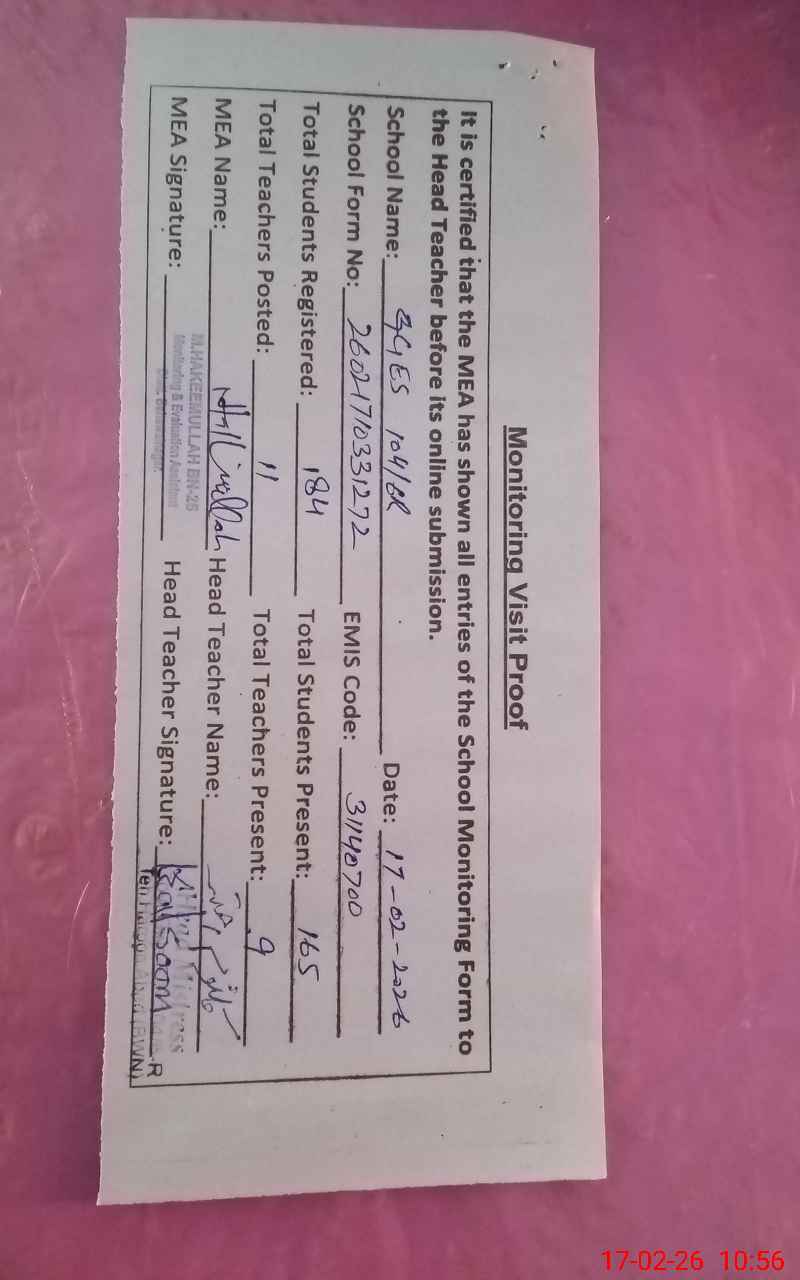 Monitoring Visit Proof
It is certified that the MEA has shown all entries of the School Monitoring Form to
the Head Teacher before its online submission.
School Name: GGES 104/6R Date: 17-02-2026
School Form No: 26021710331272 EMIS Code: 31140700
Total Students Registered: 184 Total Students Present: 165
Total Teachers Posted: 11 Total Teachers Present: 9
MEA Name: Head Teacher Name: کلثوم
M.HAKEEMULLAH BN-25
Monitoring & Evaluation Assistant
MEA Signature: Head Teacher Signature: Kalsoom
17-02-26 10:56